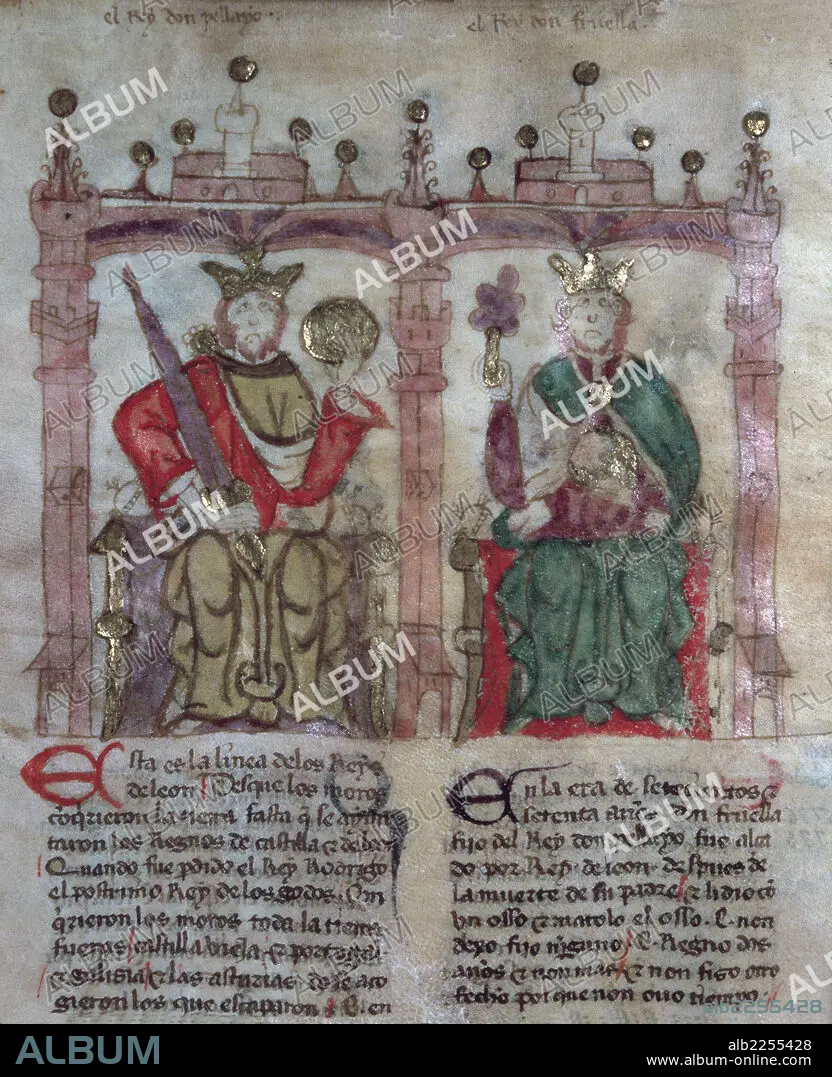 el Rey don pellayo.
el Rey don fruella.
Esta es la linea delos Reyes
de leon. Desque los moros
cōqrieron la tierra fasta q̄ se aȳun
taron los Regnos de castilla & de leō
Quando fue pdido el Rey Rodrigo
el postrimo Rey delos godos. Con
q̄rieron los moros toda la tierra
fueras castilla vieja & portogal
& galisia & las asturias do se aco
gieron los que escaparon. E en
En la era de setecientos &
setenta años. Don fruella
fijo del Rey don pellayo fue alca
do por Rey de leon despues de
la muerte de su padre & lidio cō
vn osso & matolo el osso. E non
dexo fijo ninguno. E Regno dos
años & non mas & non fiso otro
fecho porque non ouo tienpo.
ALBUM
alb2255428
ALBUM
alb2255428
www.album-online.com